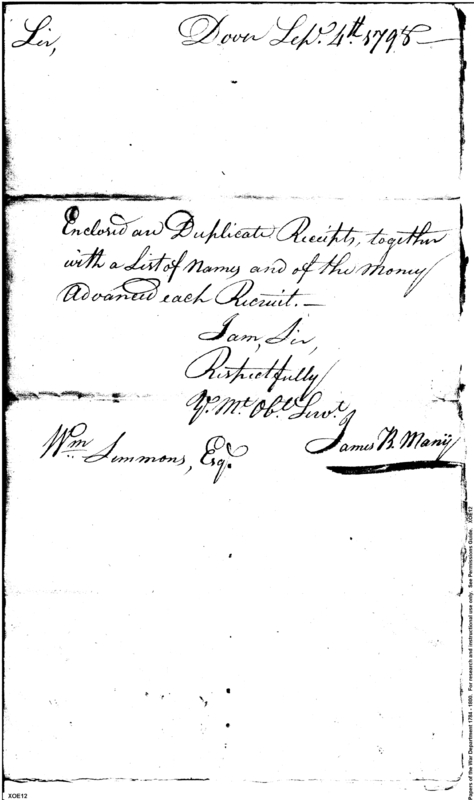 Dover Sep.r 4th. 1798
Sir,
Enclosed are Duplicate Receipts, together
with a List of Names and of the Money
Advanced each Recruit.
I am, Sir,
Respectfully
Yr. Mt. Obt. Servt.
James B. Many
Wm. Simmons, Esqr.
Papers of the War Department 1784 - 1800. For research and instructional use only. See Permissions Guide. XOE12
XOE12